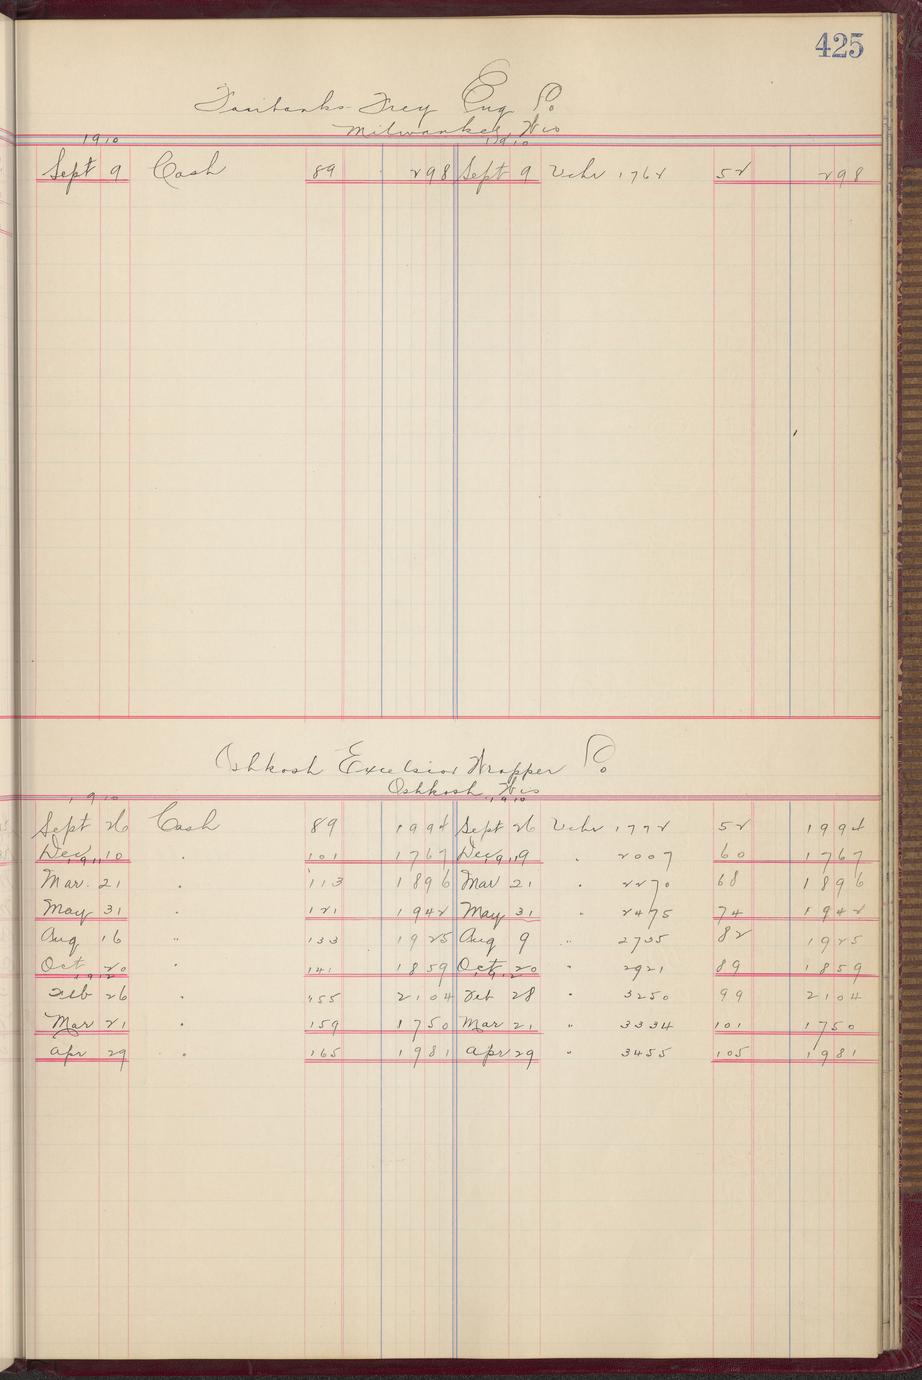 425
Fairbanks-Frey Eng Co
Milwaukee, Wis
1910 1910
Sept 9 Cash 89 298 Sept 9 Vchr 1762 52 298
Oshkosh Excelsior Wrapper Co
Oshkosh, Wis
1910 1910
Sept 26 Cash 89 1994 Sept 26 Vchr 1772 52 1994
Dec 10 " 101 1767 Dec 9 " 2007 60 1767
1911 1911
Mar. 21 " 113 1896 Mar 21 " 2270 68 1896
May 31 " 121 1942 May 31 " 2475 74 1942
Aug 16 " 133 1925 Aug 9 " 2735 82 1925
Oct 20 " 141 1859 Oct 20 " 2921 89 1859
1912 1912
Feb 26 " 155 2104 Feb 28 " 3250 99 2104
Mar 21 " 159 1750 Mar 21 " 3334 101 1750
Apr 29 " 165 1981 Apr 29 " 3455 105 1981